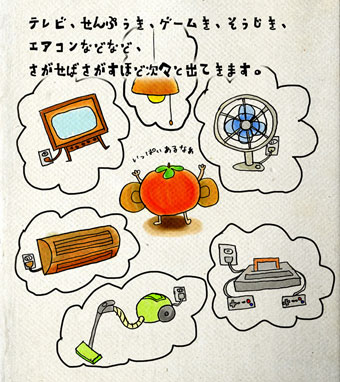 テレビ、せんぷうき、ゲームき、そうじき、
エアコンなどなど、
さがせばさがすほど次々と出てきます。
いっぱいあるなぁ